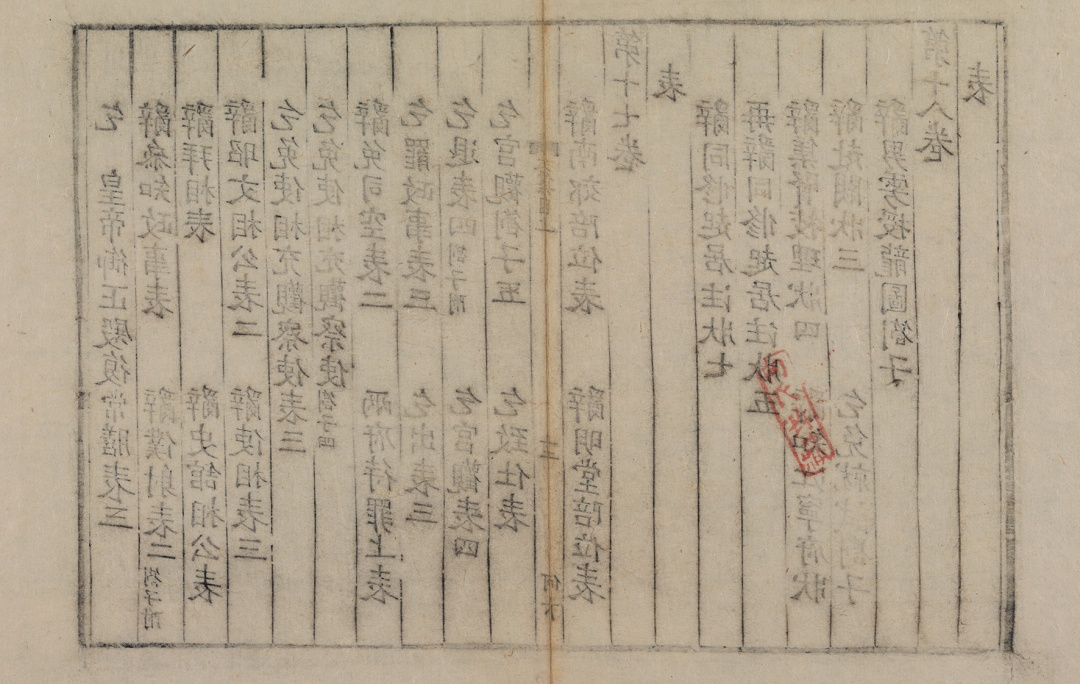 乞　皇帝御正殿復常膳表三
辭參知政事表　辭僕射表二劄子附
辭拜相表　辭史館相公表
辭昭文相公表二　辭使相表三
乞免使相充觀察使表三
乞免使相充觀察使劄子四
辭免司空表二　兩府待罪上表
乞罷政事表三　乞出表三
乞退表四劄子附　乞宮觀表四
乞宮觀劄子五　乞致仕表
三
辭南郊陪位表　辭明堂陪位表
第十七卷
表
辭同修起居注狀七
再辭同修起居注狀五
辭集賢校理狀四　辭知江寧府狀
辭赴闕狀三　乞免就試劄子
辭男雱授龍圖劄子
第十八卷
表